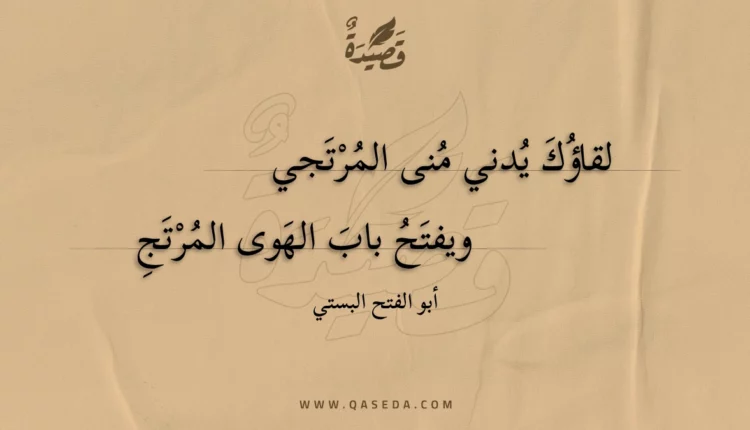 قَصِيدَةٌ
لقاؤُكَ يُدني مُنى المُرْتَجي
ويفتَحُ بابَ الهَوى المُرْتَجِ
أبو الفتح البستي
WWW.QASEDA.COM